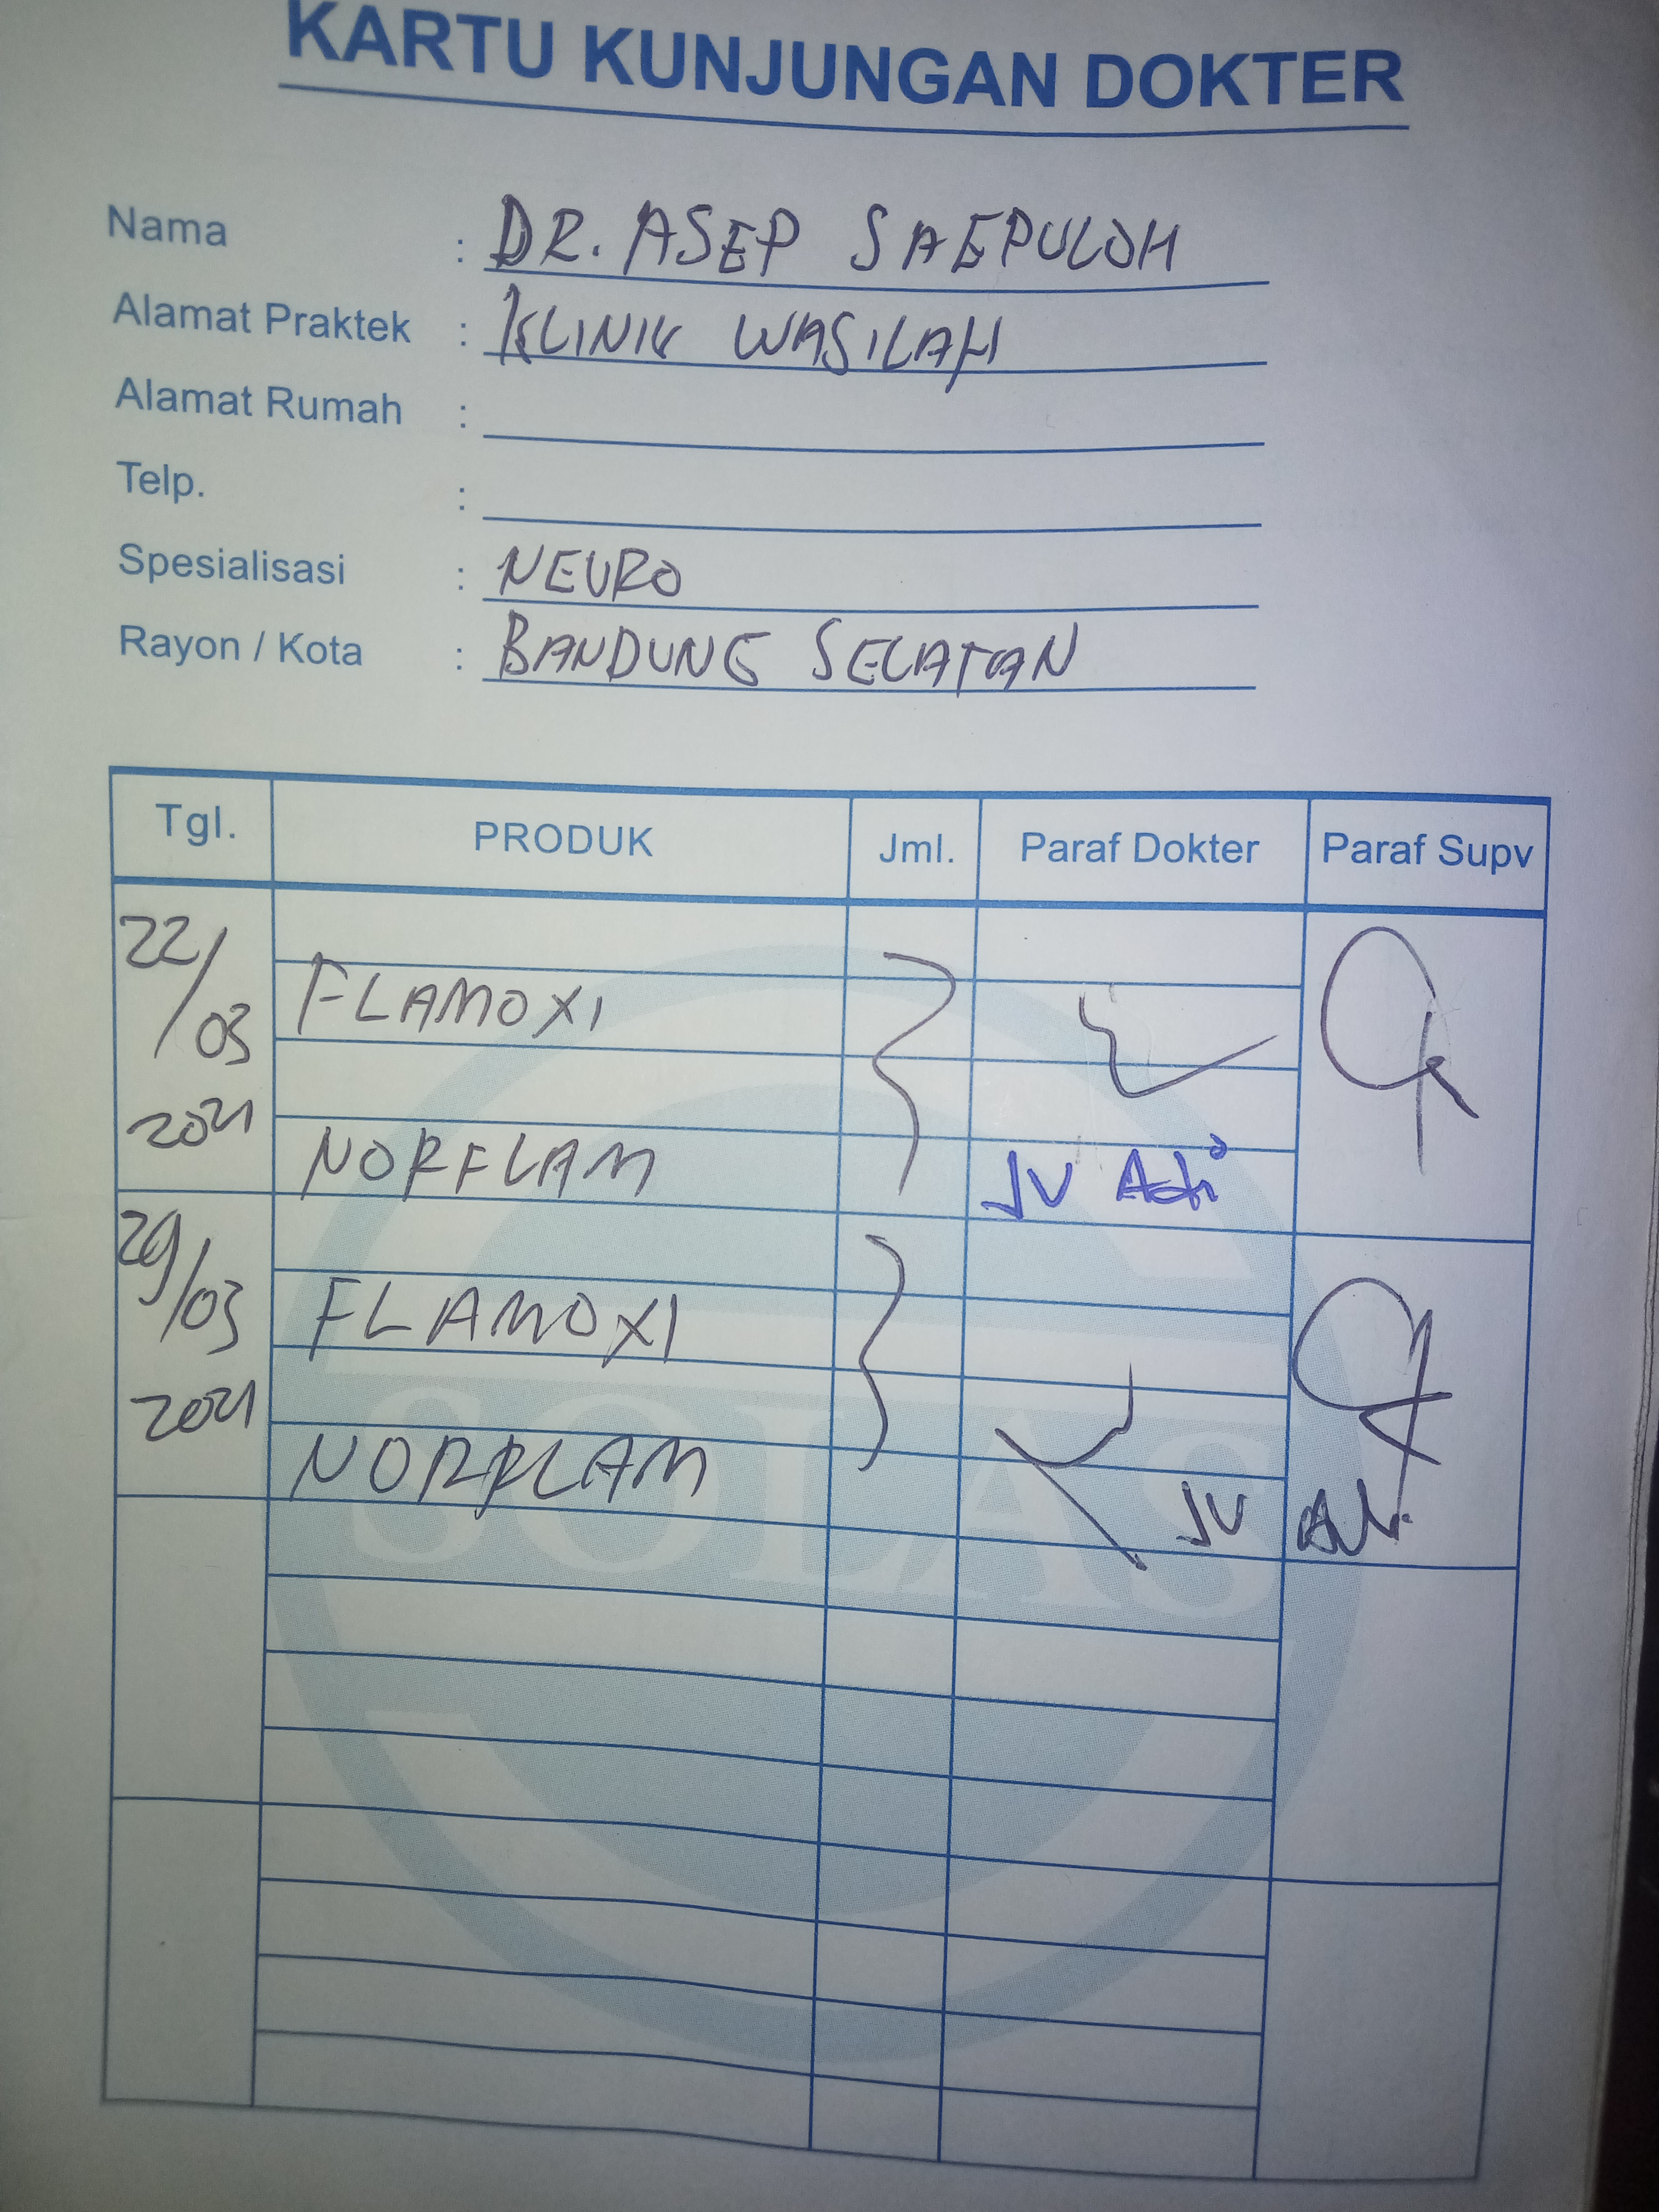 KARTU KUNJUNGAN DOKTER
Nama : DR. ASEP SAEPULOH
Alamat Praktek : KLINIK WASILAH
Alamat Rumah :
Telp. :
Spesialisasi : NEURO
Rayon / Kota : BANDUNG SELATAN
Tgl. PRODUK Jml. Paraf Dokter Paraf Supv
22/03 2021 FLAMOXI
NORFLAM JV Adi
29/03 2021 FLAMOXI
NORFLAM JV
SOLAS